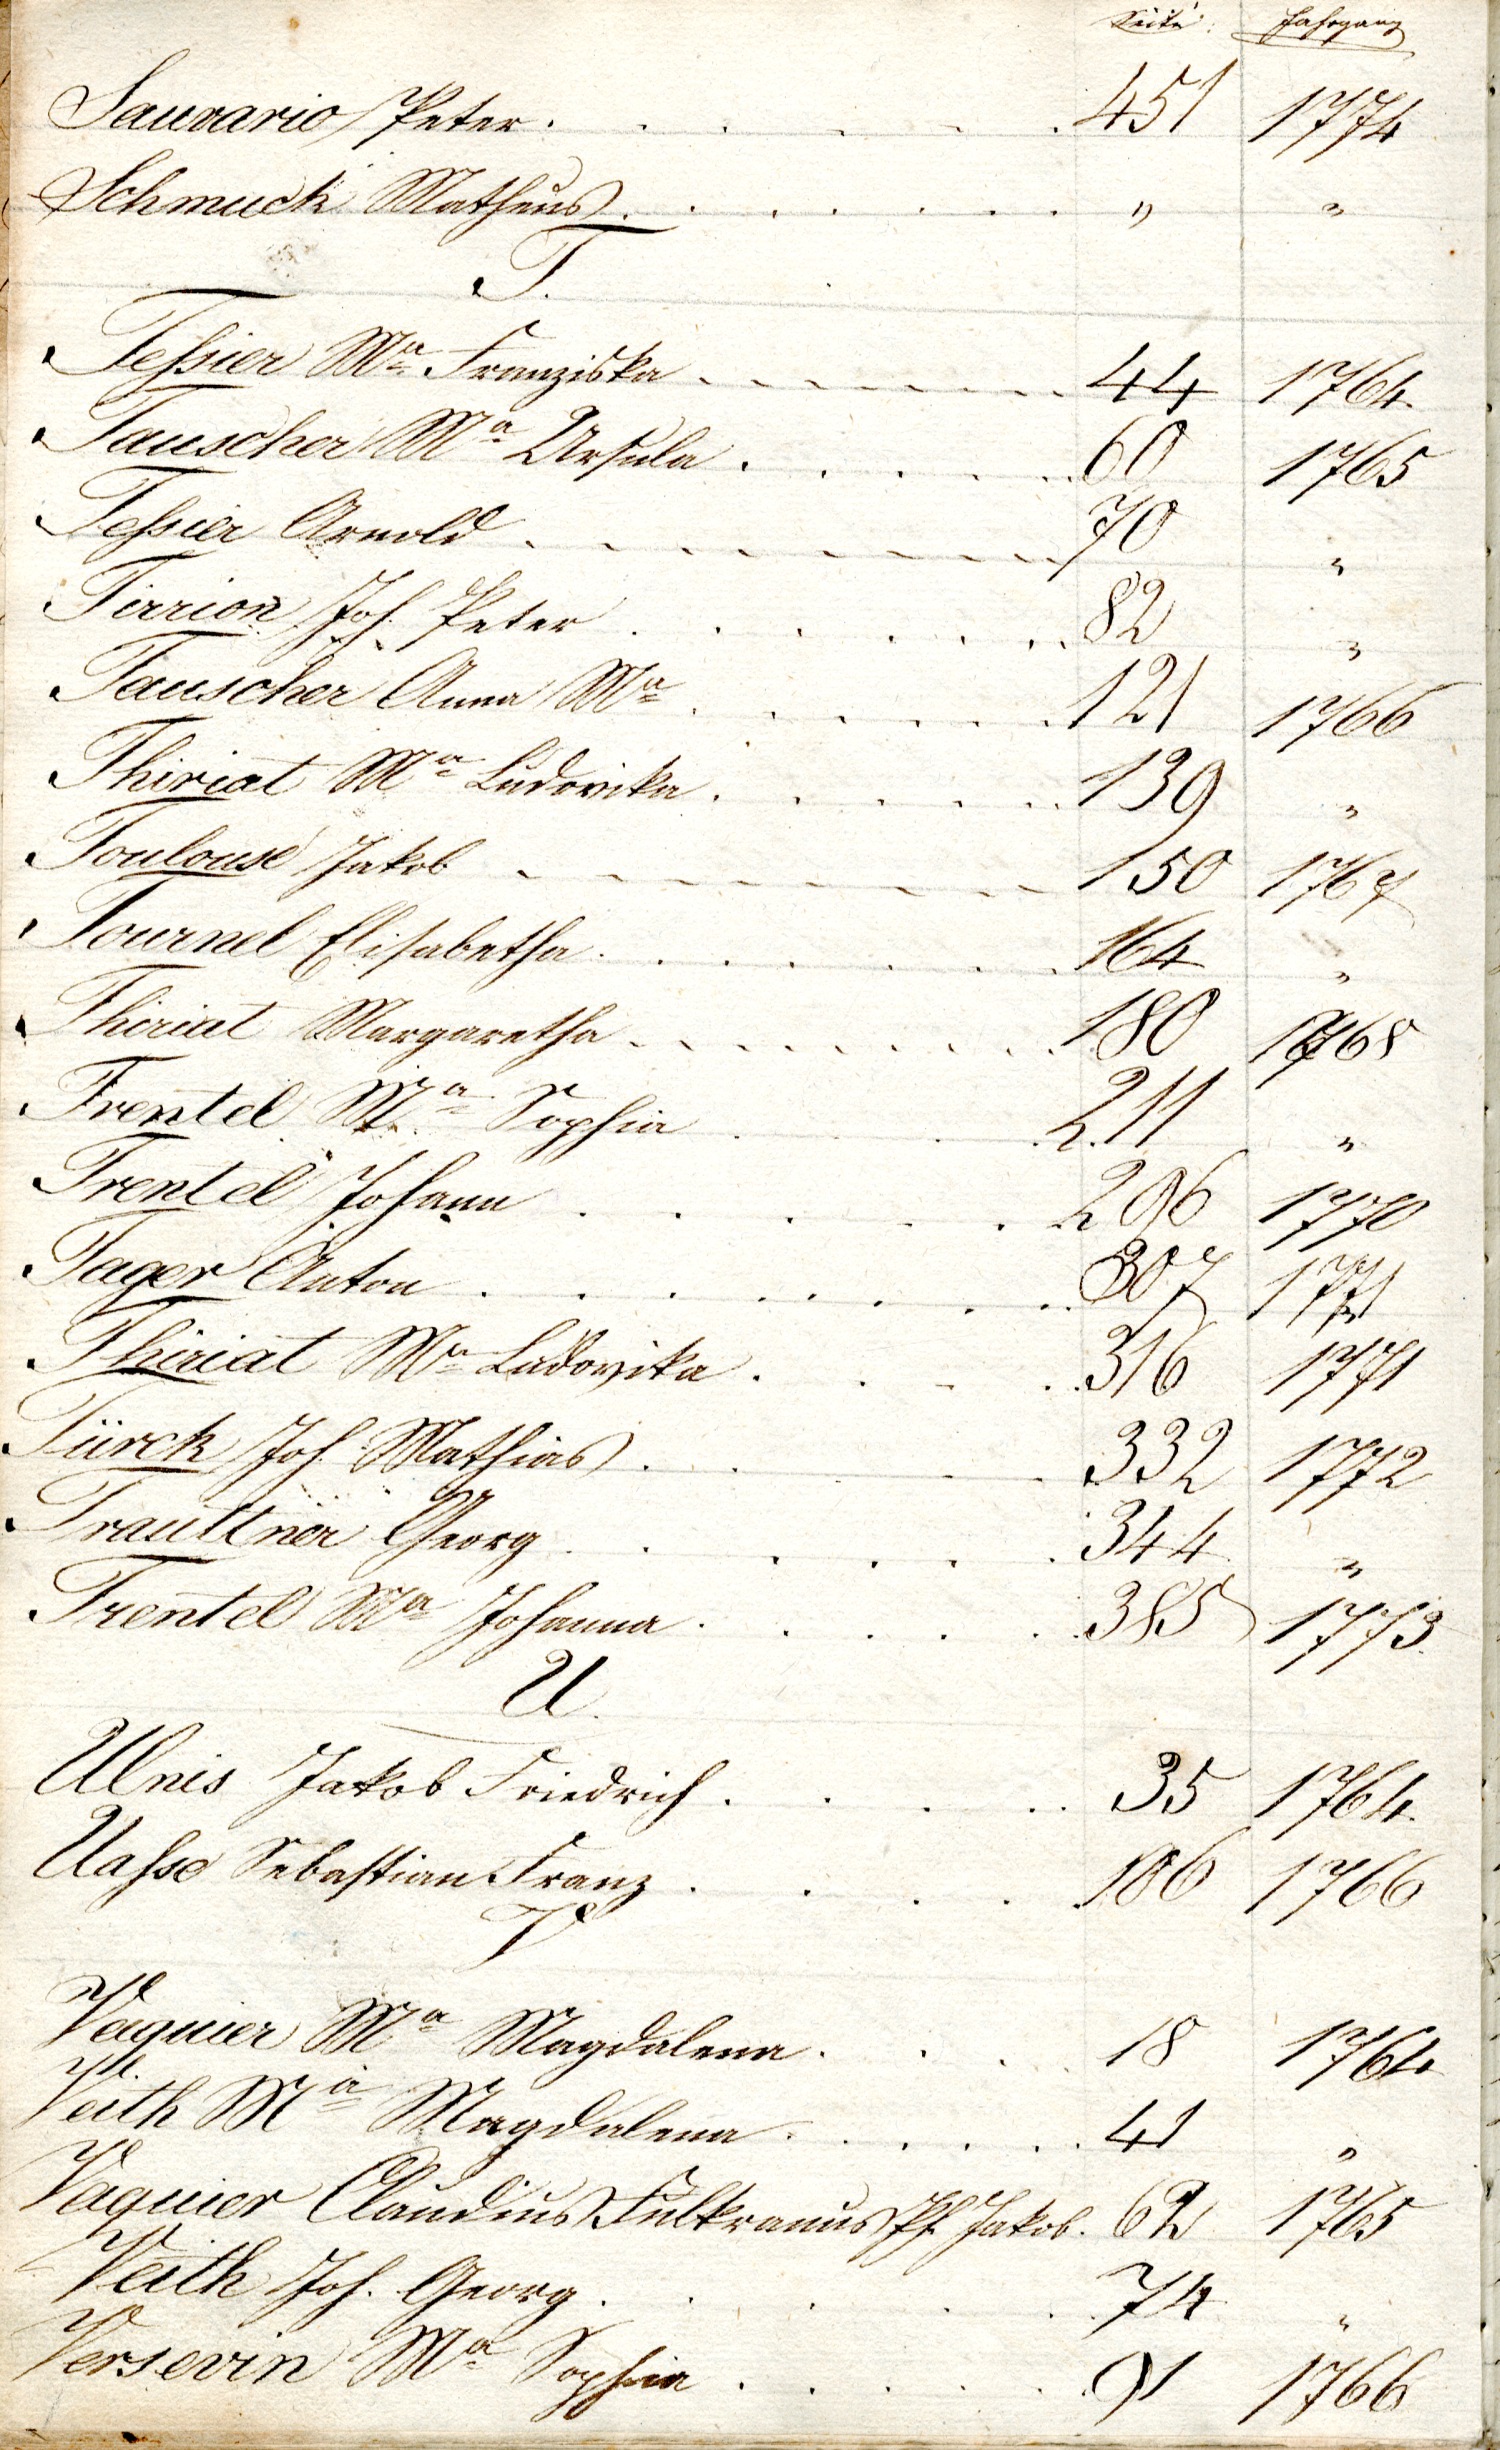 Seite. Jahrgang
Saurario Peter. 451 1774
Schmuck Matheus. " "
T.
Teßier Ma Franziska 44 1764.
Tauscher Ma Ursula 60 1765
Teßier Arnold 70 "
Tirrion Joh. Peter 82 "
Tauscher Anna Ma 121 1766
Thiriat Ma Ludovika 139 "
Toulouse Jakob 150 1767
Tournel Elisabetha 164 "
Thiriat Margaretha 180 1768
Trentel Ma Sophia 211 "
Trentel Johann 296 1770
Tager Anton 307 1771
Thiriat Ma Ludovika 316 1771
Türck Joh. Mathias 332 1772
Trauttner Georg 344 "
Trentel Ma Johanna 385 1773.
U.
Ulnis Jakob Friedrich 35 1764.
Uaßse Sebastian Franz 106 1766
V
Vaquier Ma Magdalena 18 1764
Veith Ma Magdalena 41 "
Vaquier Claudius Fulkranus Ph. Jakob. 62 1765
Veith Joh. Georg 74 "
Versevin Ma Sophia 91 1766